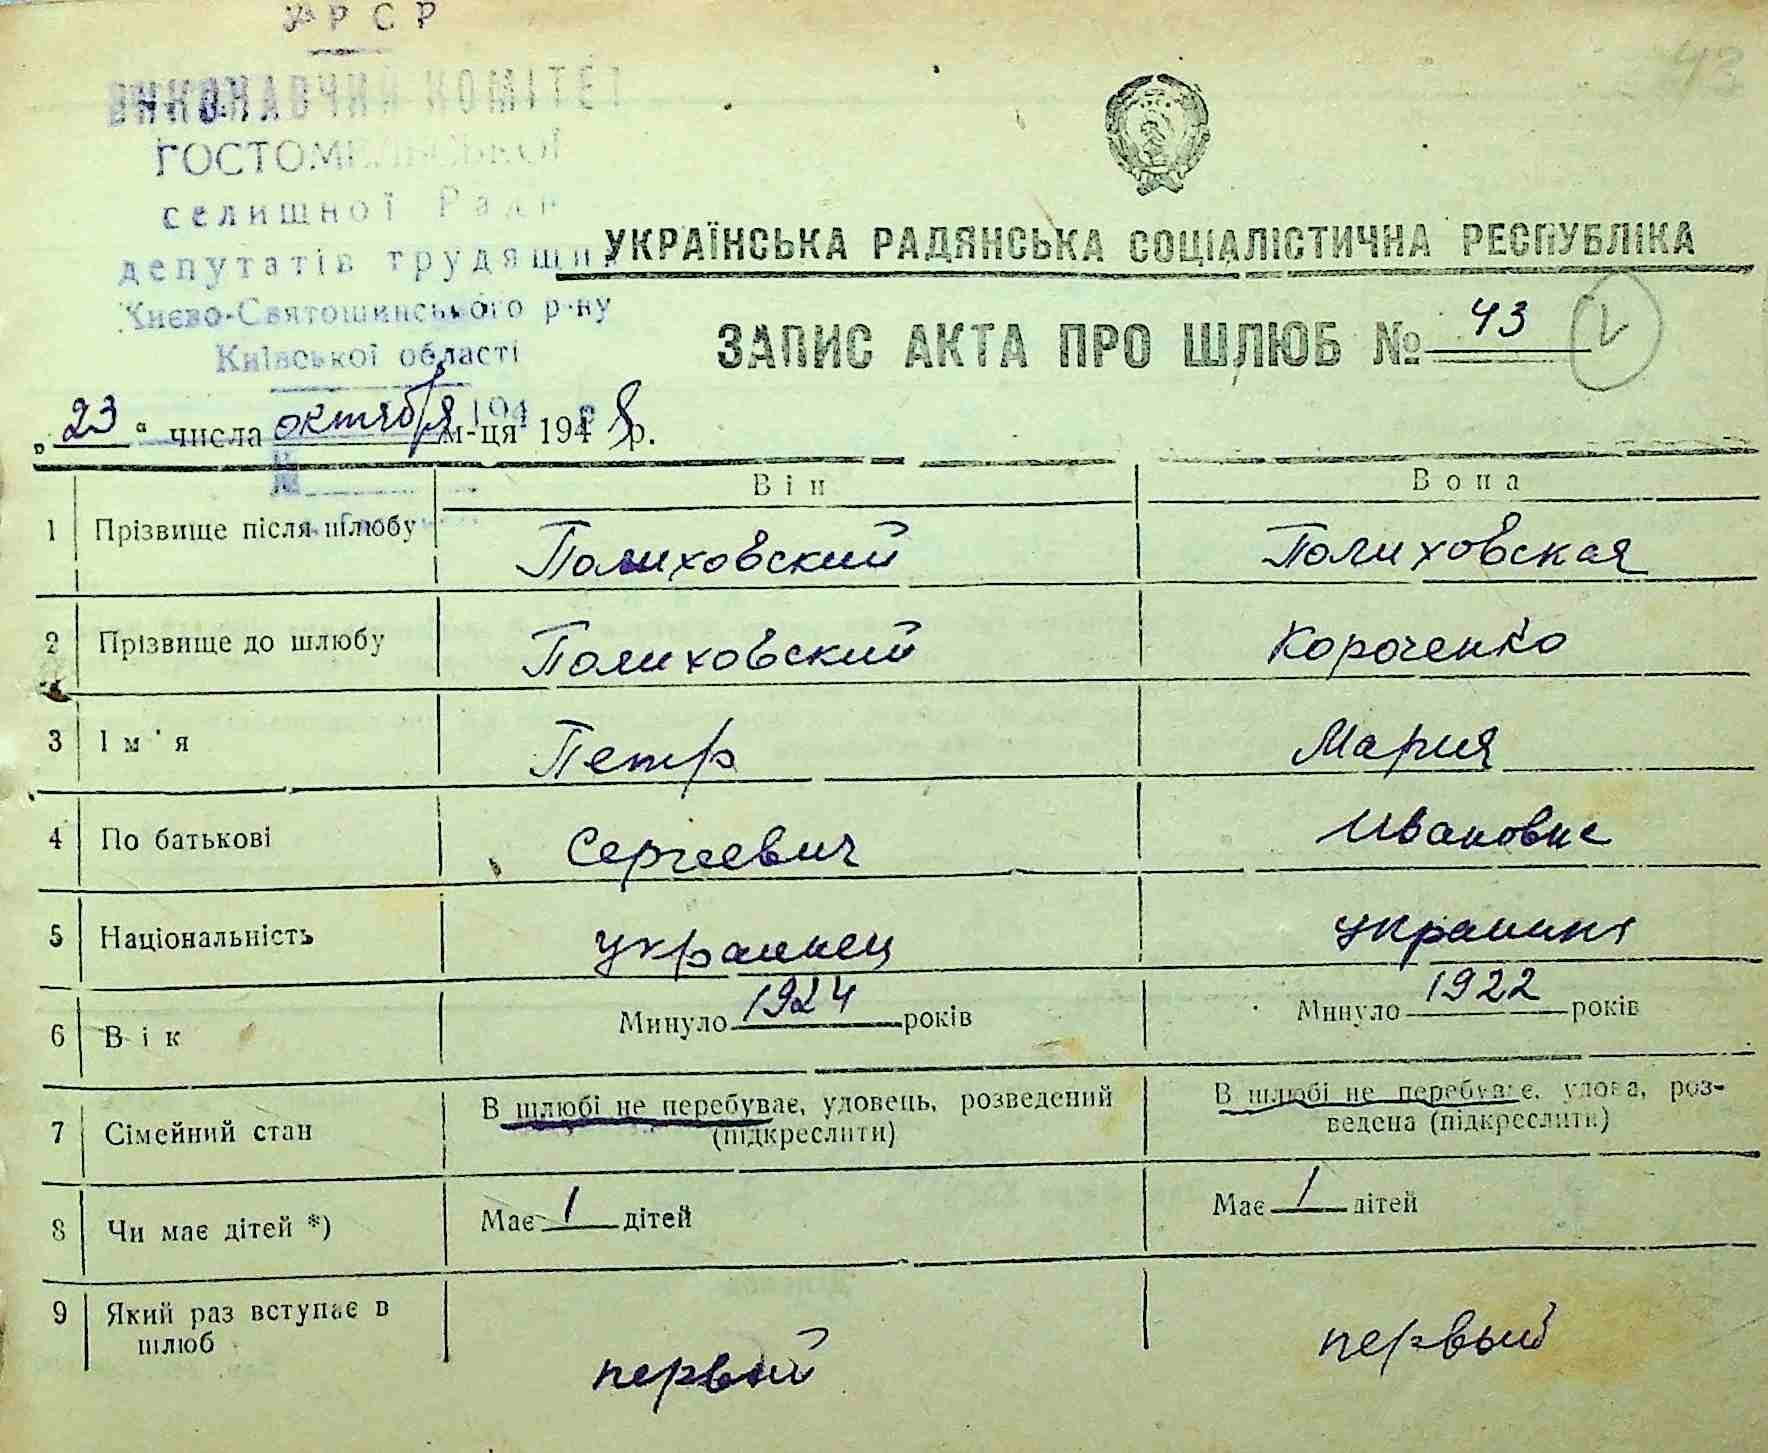 УРСР
ВИКОНАВЧИЙ КОМІТЕТ
ГОСТОМЕЛЬСЬКОЇ
селишної Ради
депутатів трудящих
Києво-Святошинського р-ну
Київської області
43
УКРАЇНСЬКА РАДЯНСЬКА СОЦІАЛІСТИЧНА РЕСПУБЛІКА
ЗАПИС АКТА ПРО ШЛЮБ № 43
„23“ числа октября м-ця 1948 р.
194
№
Він Вона
1 Прізвище після шлюбу Полиховский Полиховская
2 Прізвище до шлюбу Полиховский Короченко
3 Ім'я Петр Мария
4 По батькові Сергеевич Ивановна
5 Національність украинец украинка
6 Вік Минуло 1924 років Минуло 1922 років
7 Сімейний стан В шлюбі не перебуває, удовець, розведений (підкреслити) В шлюбі не перебуває, удова, роз-ведена (підкреслити)
8 Чи має дітей *) Має 1 дітей Має 1 дітей
9 Який раз вступає в шлюб первый первый